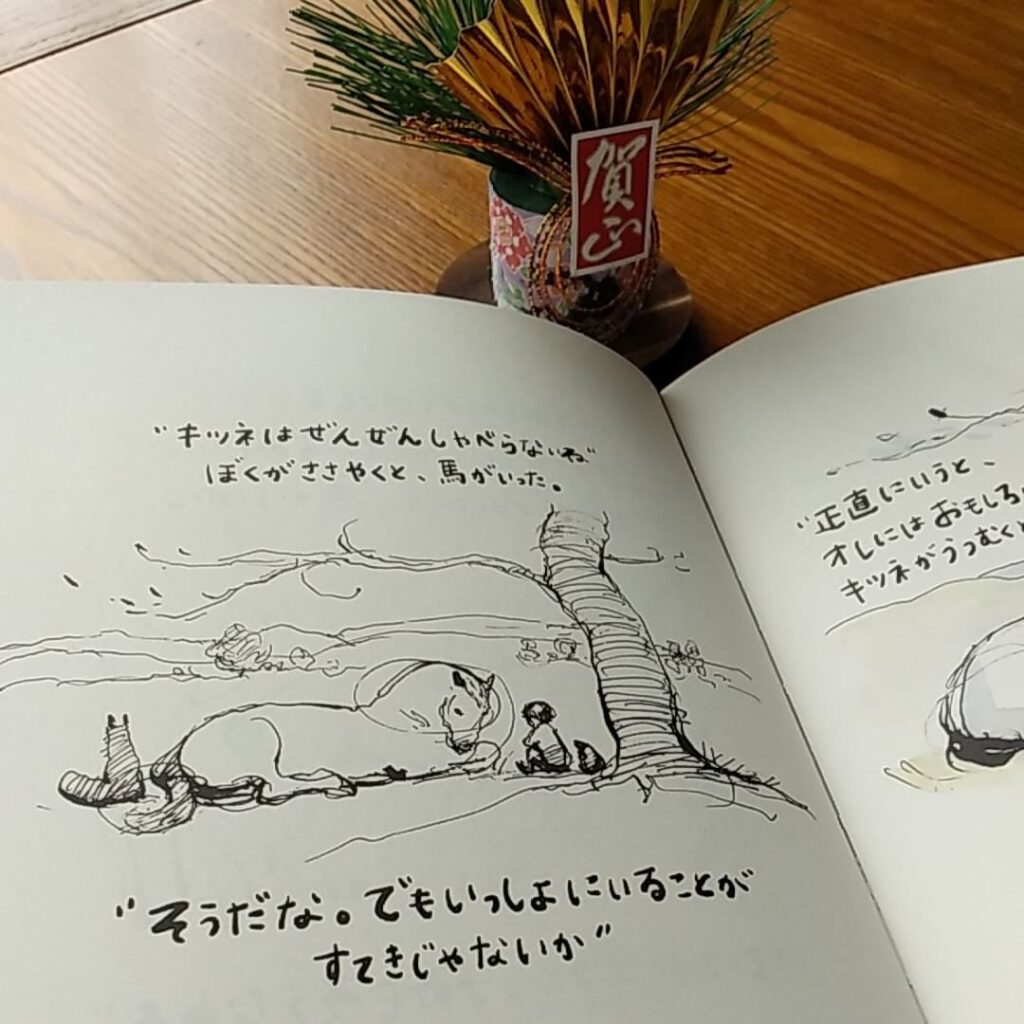 賀正
"キツネはぜんぜんしゃべらないね"
ぼくがささやくと、馬がいった。
"そうだな。でもいっしょにいることが
すてきじゃないか"
"正直にいうと、
オレにはおもしろ
キツネがうつむくと